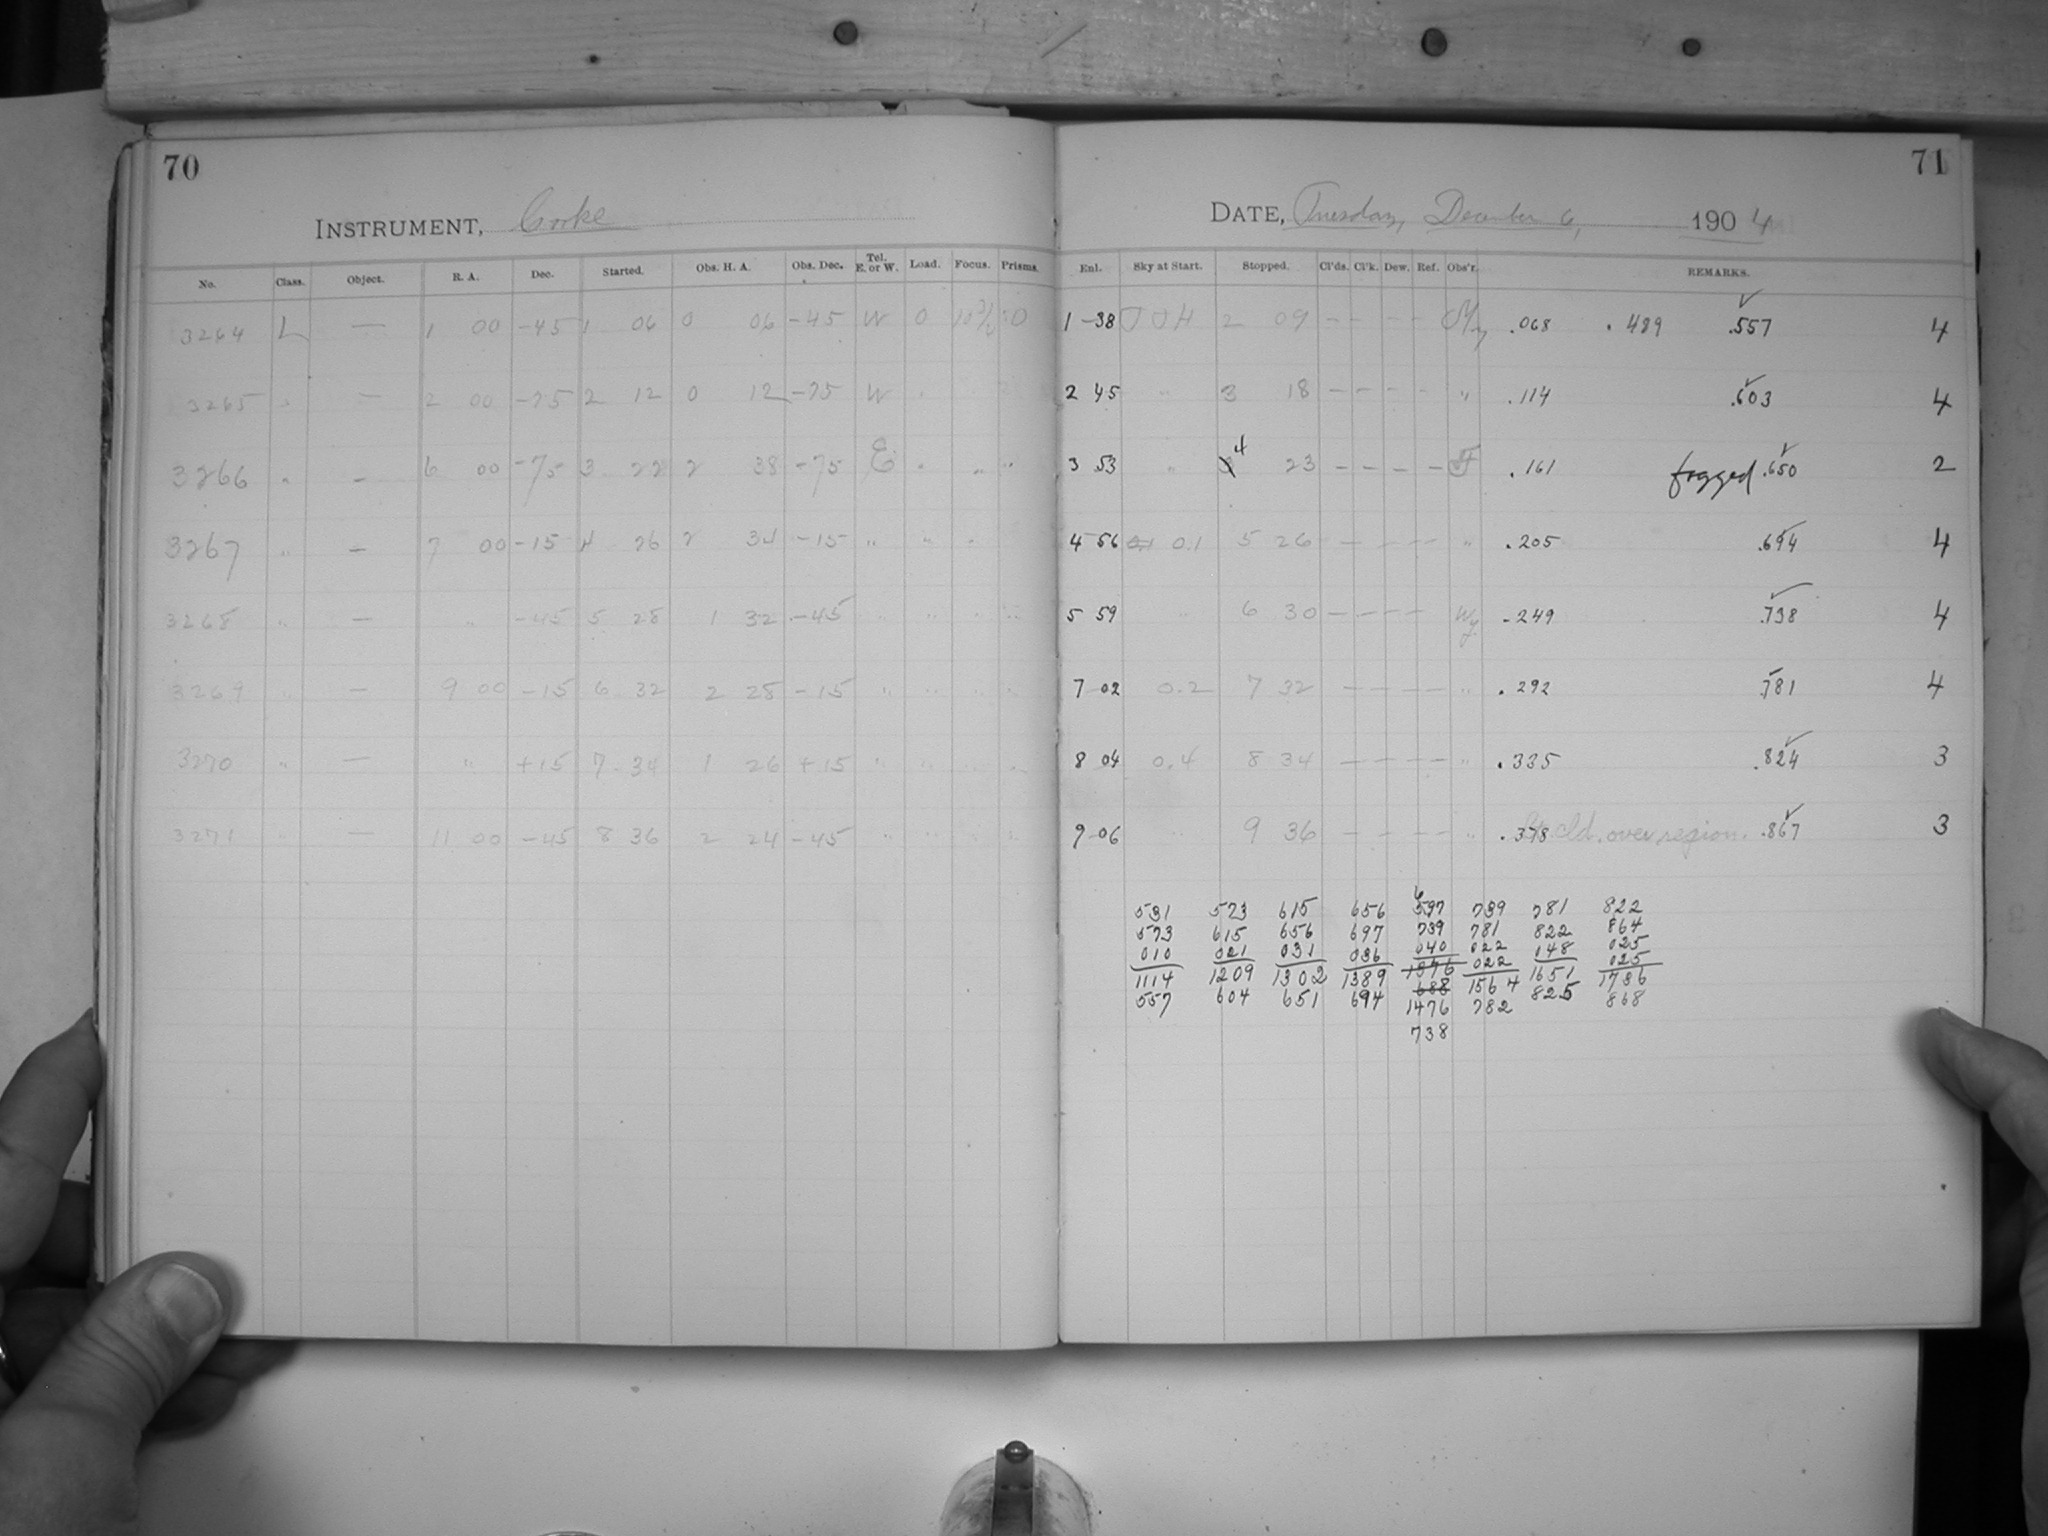 70
INSTRUMENT, Cooke
No. Class. Object. R. A. Dec. Started. Obs. H. A. Obs. Dec. Tel. E. or W. Load. Focus. Prisms.
3264 L — 1 00 -45 1 06 0 06 -45 W 0 0
3265 " — 2 00 -75 2 12 0 12 -75 W " "
3266 " — 6 00 -75 3 22 2 38 -75 E " " "
3267 " — 7 00 -15 4 26 2 34 -15 " " "
3268 " — " -45 5 28 1 32 -45 " " " "
3269 " — 9 00 -15 6 32 2 28 -15 " " " "
3270 " — " +15 7 34 1 26 +15 " " " "
3271 " — 11 00 -45 8 36 2 24 -45 " " " "
71
DATE, Tuesday, December 6, 1904
Enl. Sky at Start. Stopped. Cl'ds. Cl'k. Dew. Ref. Obs'r. REMARKS.
1 38 2 09 — — — — .068 .489 .557 4
2 45 " 3 18 — — — — " .114 .603 4
3 53 " 4 23 — — — — .161 fogged .650 2
4 56 0.1 5 26 — — — — " .205 .694 4
5 59 " 6 30 — — — — Wy .249 .738 4
7 02 0.2 7 32 — — — — " .292 .781 4
8 04 0.4 8 34 — — — — " .335 .824 3
9 06 " 9 36 — — — — " .378 cld. over region. .867 3
6
531 573 615 656 597 739 781 822
573 615 656 697 739 781 822 864
010 021 031 036 040 022 048 025
022 025
1114 1209 1302 1389 1376 1564 1651 1736
557 604 651 694 688 782 825 868
1476
738